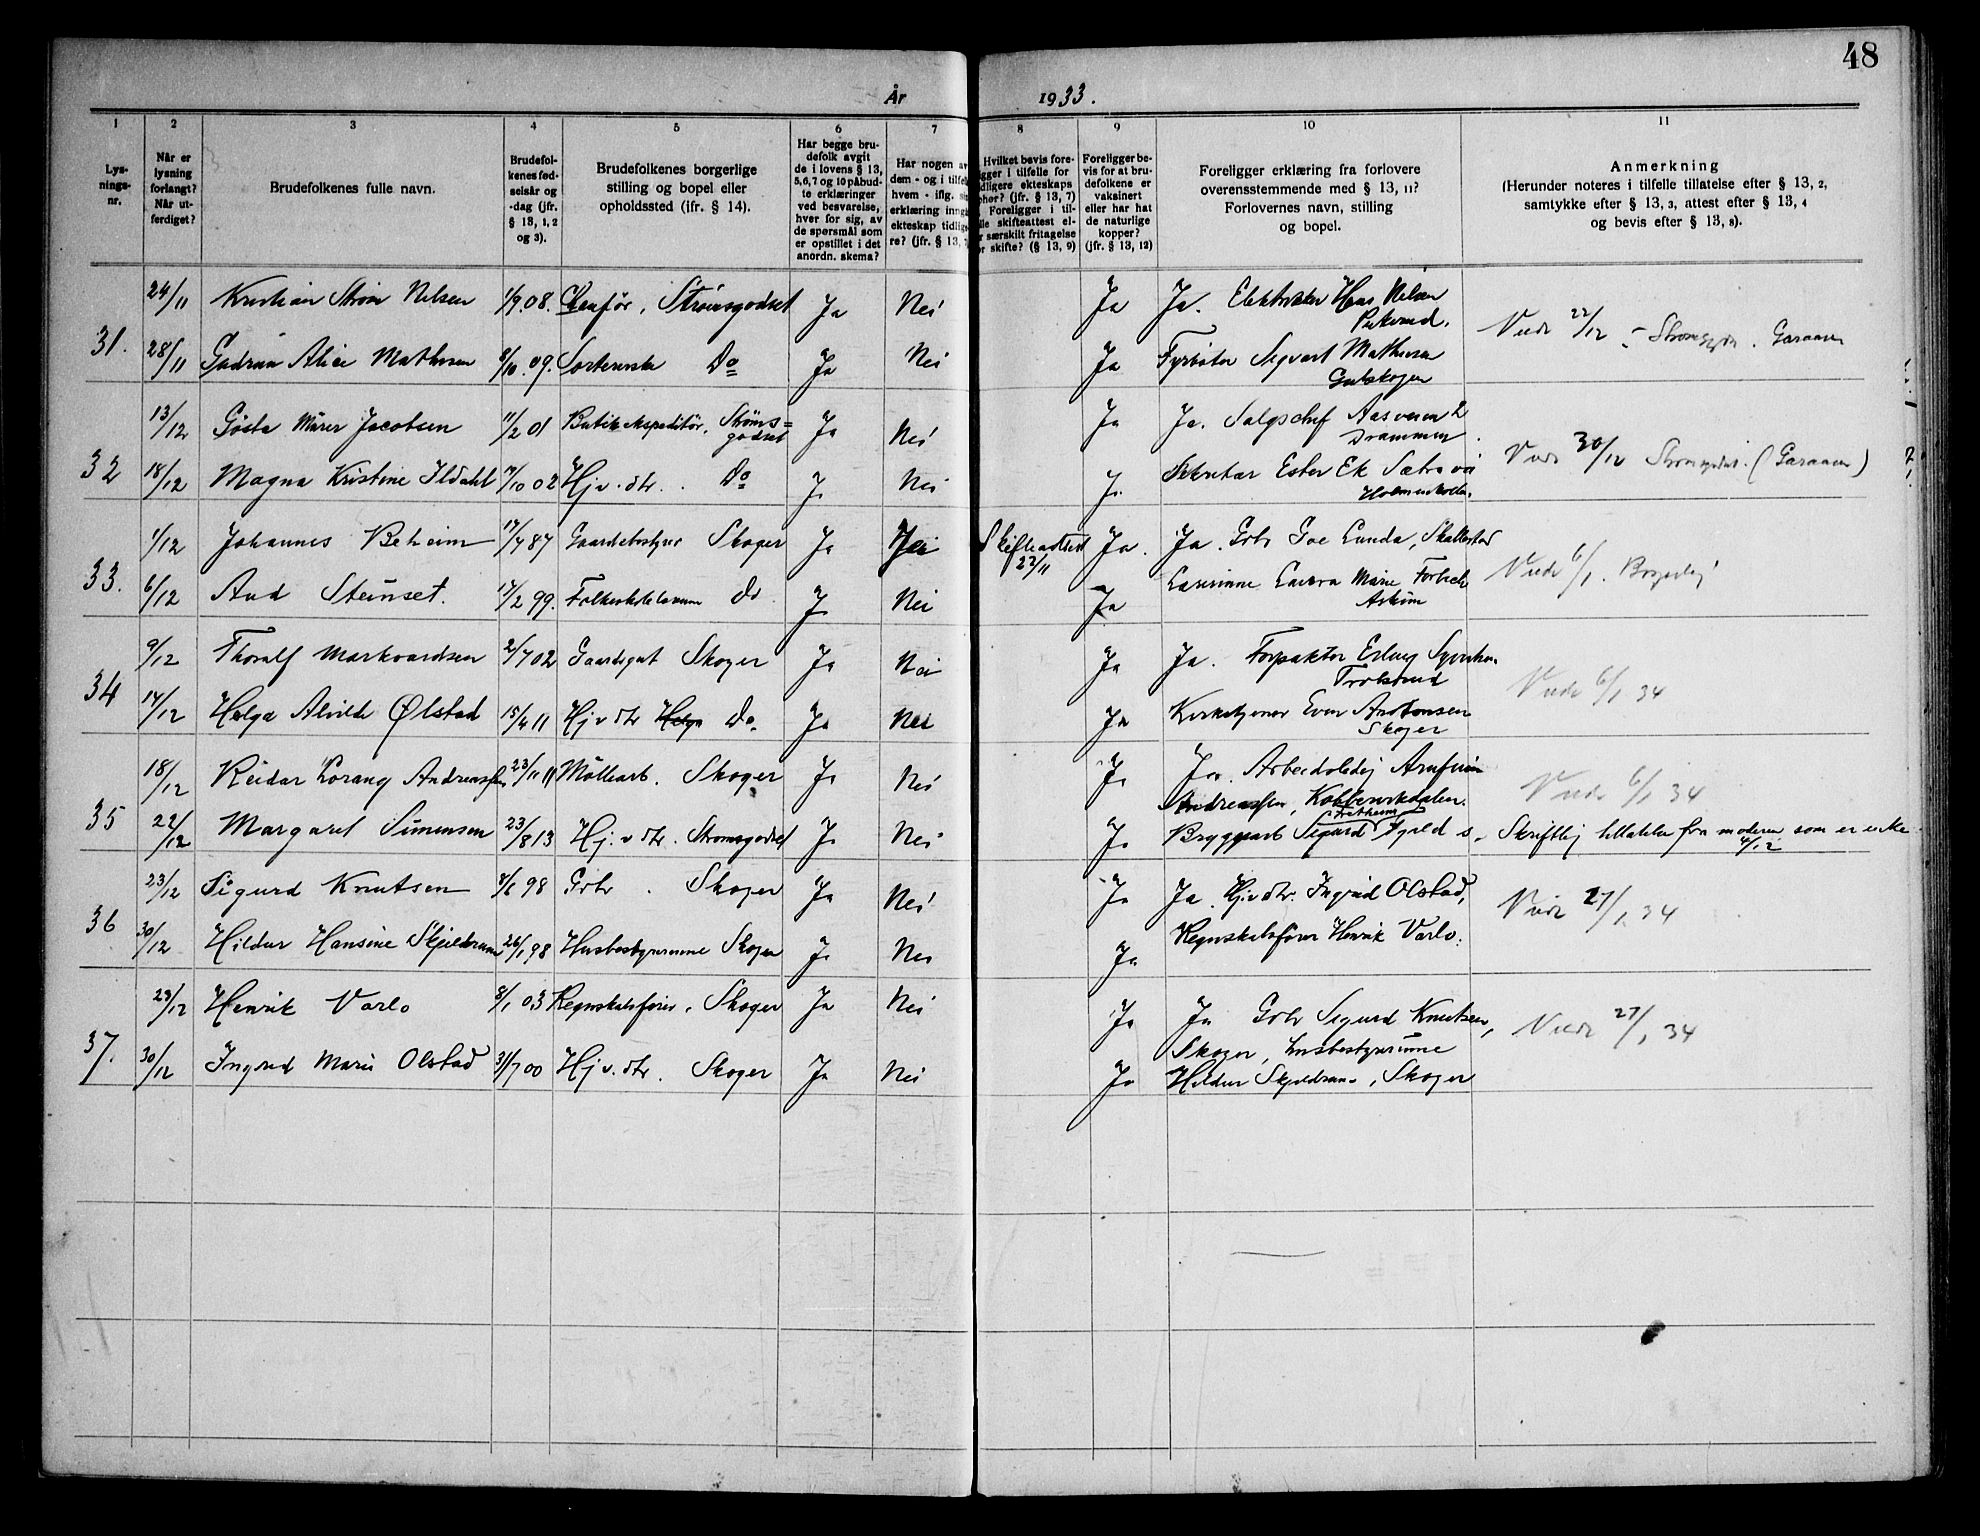 48
År 1933.
1 2 3 4 5 6 7 8 9 10 11
Lys-
nings-
nr.
Når er
lysning
forlangt?
Når ut-
ferdiget?
Brudefolkenes fulle navn.
Brudefol-
kenes fød-
selsår og
-dag (jfr.
§ 13, 1, 2
og 3).
Brudefolkenes borgerlige
stilling og bopel eller
opholdssted (ifr. § 14).
Har begge bru-
defolk avgit
de i lovens § 13,
5, 6, 7 og 10 påbud-
te erklæringer
ved besvarelse,
hver for sig, av
de spørsmål som
er opstillet i det
anordn. skema?
Har nogen av
dem - og i tilfe
hvem - iflg.
erklæring inng
ekteskap tidlig
re? (jfr. § 13,
Hvilket bevis fore-
gger i tilfelle for
dligere ekteskaps
phør? (jfr. § 13, 7)
Foreligger i til-
lle skifteattest el-
r særskilt fritagelse
or skifte? (§ 13, 9)
Foreligger be-
vis for at bru-
defolkene er
vaksinert
eller har hat
de naturlige
kopper?
(jfr. § 13, 12)
Foreligger erklæring fra forlovere
overensstemmende med § 13, 11?
Forlovernes navn, stilling
og bopel.
Anmerkning
(Herunder noteres i tilfelle tillatelse efter § 13, 2,
samtykke efter § 13, 3, attest efter § 13, 4
og bevis efter § 13, 8).
31. 24/11 Kristian Strøm Nilsen 1/9.08. Chaufør, Strömsgodset Ja Nei Ja Ja. Elektriker Hans Nilsen
28/11 Gudrun Alice Mathisen 8/10.09. Do Ja Nei Ja Fyrbøter Sigvart Mathisen
Gulskogen
Viede 22/12
32 13/12 Gösta Mürer Jacobsen 11/2 01 Butikekspeditör. Ströms=
godset Ja Nei Ja Ja. Salgschef Aas
Drammen
18/12 Magna Kristine Ildahl 10 02 Hj v. dtr. Do Ja Nei Ja Sekretær Ester Ek
Viede 30/12
33. 1/12 Johannes Beheim 17/7 87 Gaardsbestyrer Skoger Ja Skifteattest
22/11 Ja. Ja. Gbr Lunda,
6/12 Aud Steinset. 17/2 99. Do Ja Nei Ja Lærerinne Laura Marie
Askim
Viede 6/1.
34 9/12 Thoralf Markvardsen 2/7 02 Gaardsgut Skoger Ja Nei Ja Ja. Forpakter Erling
14/12 Helga Alvilde Ølstad 15/4 11 Hj v dtr Helga Do. Ja Nei Ja Kirketjener Even
Skoger
Viede 6/1 34
35 18/12 Reidar Lorang Andreassen 23/11 11 Möllearb. Skoger Ja Nei Ja Ja. Arbeidsledig Arnfinn
Andreassen, Kobbervikdalen.
22/12 Margaret Simensen 23/8 13 Hj. v dtr. Stromsgodset Ja Nei Ja Bryggearb Sigurd
Viede 6/1 34
Skriftlig tillatelse fra moderen som er enke.
4/12
36 23/12 Sigurd Knutsen 98 Gbr. Skoger Ja Nei Ja Ja. Hj v dtr. Ingrid Olstad,
30/12 Hildur Hansine Skjeldrum 26/1 98 Husbestyrerinne Skoger Ja Nei Ja Regnskabsfører Henrik Varlo.
Viede 27/1 34
37. 23/12 Henrik Varlo 8/1 03 Regnskabsfører. Skoger Ja Nei Ja Ja Gbr Sigurd Knutsen,
Skoger, husbestyrerinne
30/12 Ingrid Marie Olstad 31/7 00 Hj v. dtr. Skoger Ja Nei Ja Hildur Skjeldrum, Skoger
Viede 27/1 34